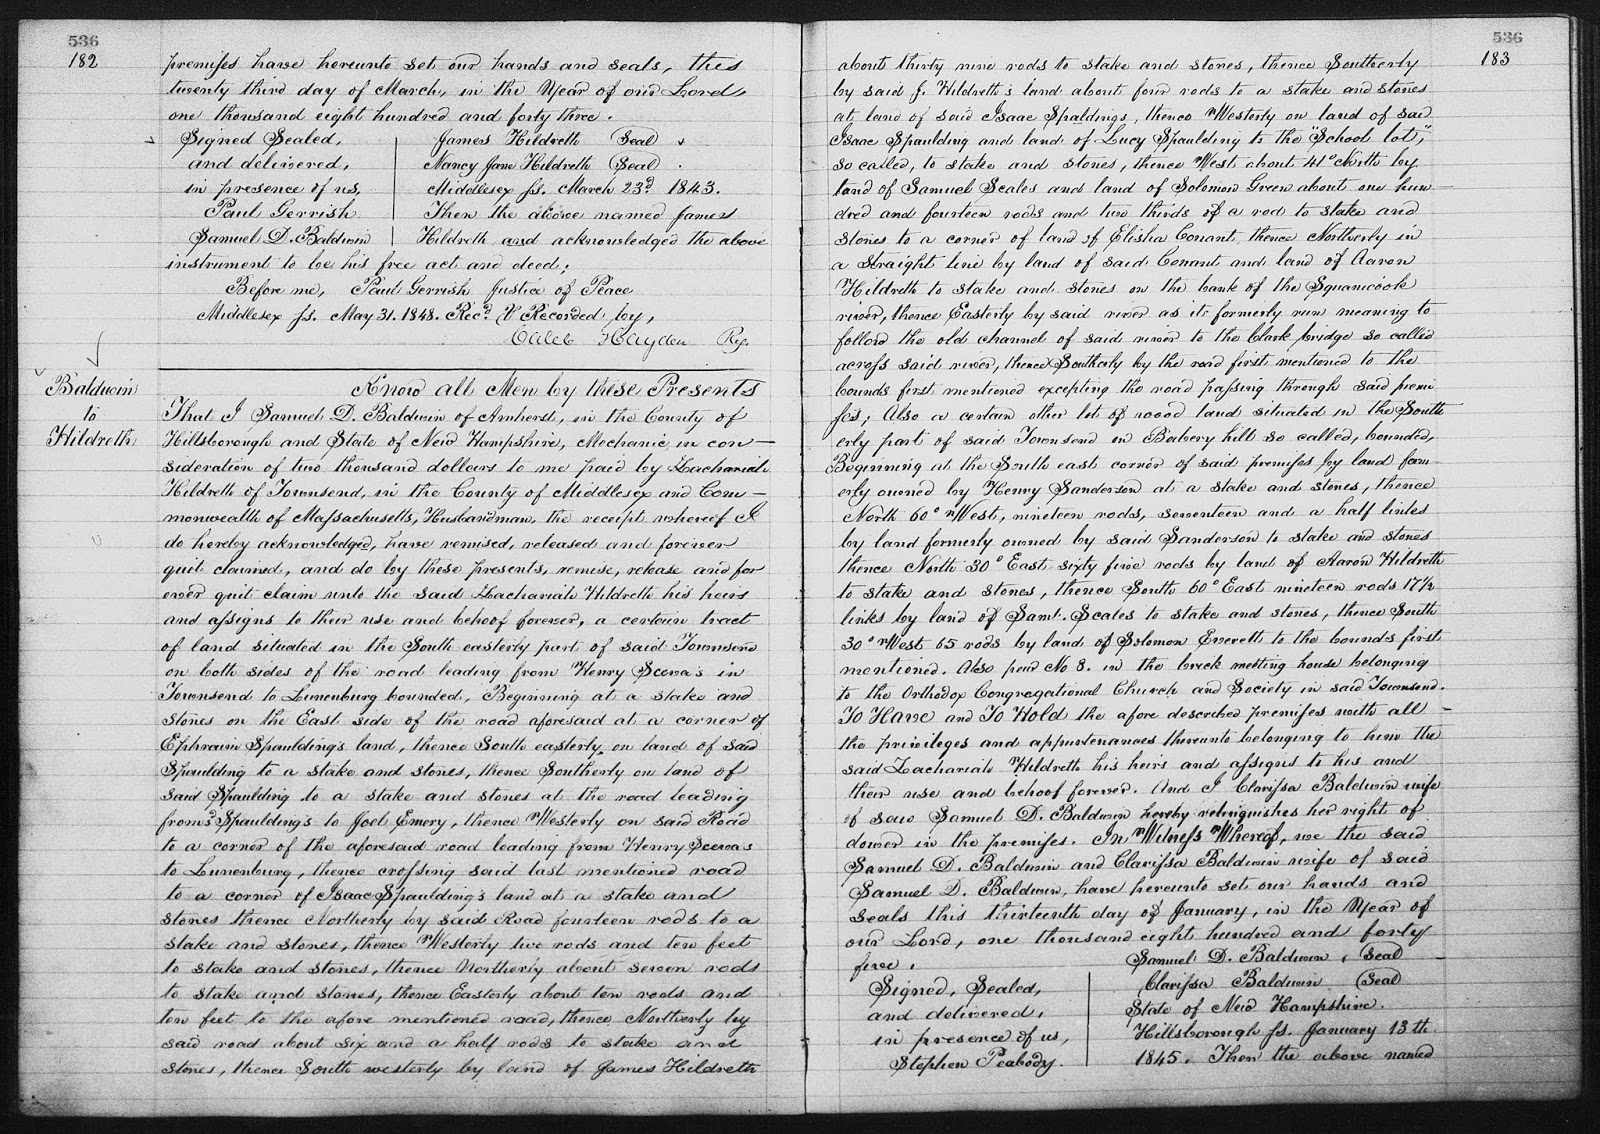 536
182
premises have hereunto set our hands and seals, this
twenty third day of March, in the Year of our Lord,
one thousand eight hundred and forty three.
Signed Sealed,
and delivered,
in presence of us,
Paul Gerrish
Samuel D. Baldwin
James Hildreth Seal
Nancy Jane Hildreth Seal
Middlesex ss. March 23d 1843.
Then the above named James
Hildreth and acknowledged the above
instrument to be his free act and deed;
Before me, Paul Gerrish Justice of Peace
Middlesex ss. May 31. 1848. Recd & Recorded by,
Caleb Hayden Reg.
Baldwin
to
Hildreth
Know all Men by these Presents
That I Samuel D. Baldwin of Amherst, in the County of
Hillsborough and State of New Hampshire, Mechanic in con-
sideration of two thousand dollars to me paid by Zachariah
Hildreth of Townsend, in the County of Middlesex and Com-
monwealth of Massachusetts, Husbandman, the receipt whereof I
do hereby acknowledged, have remised, released and forever
quit claimed, and do by these presents, remise, release and for
ever quit claim unto the said Zachariah Hildreth his heirs
and assigns to their use and behoof forever, a certain tract
of land situated in the South easterly part of said Townsend
on both sides of the road leading from Henry in
Townsend to Lunenburg bounded, Beginning at a stake and
stones on the East side of the road aforesaid at a corner of
Ephraim Spaulding's land, thence South easterly on land of said
Spaulding to a stake and stones, thence Southerly on land of
said Spaulding to a stake and stones at the road leading
from sd Spaulding's to Joel Emery, thence Westerly on said Road
to a corner of the aforesaid road leading from Henry
to Lunenburg, thence crossing said last mentioned road
to a corner of Isaac Spaulding's land at a stake and
stones thence Northerly by said Road fourteen rods to a
stake and stones, thence Westerly two rods and ten feet
to stake and stones, thence Northerly about seven rods
to stake and stones, thence Easterly about ten rods and
ten feet to the afore mentioned road, thence Northerly by
said road about six and a half rods to stake and
stones, thence South westerly by land of James Hildreth
536
183
about thirty nine rods to stake and stones, thence Southerly
by said J. Hildreth's land about four rods to a stake and stones
at land of said Isaac Spaldings, thence Westerly on land of said
Isaac Spaulding and land of Lucy Spaulding to the "School lot,"
so called, to stake and stones, thence West about 41° North by
land of Samuel Scales and land of Solomon Green about one hun-
dred and fourteen rods and two thirds of a rod to stake and
stones to a corner of land of Elisha Conant, thence Northerly in
a straight line by land of said Conant and land of Aaron
Hildreth to stake and stones on the bank of the Squanicook
river, thence Easterly by said river as it formerly run meaning to
follow the old channel of said river to the Clark bridge so called
across said river, thence Southerly by the road first mentioned to the
bounds first mentioned excepting the road passing through said premi
ses; Also a certain other lot of wood land situated in the South
erly part of said Townsend on Babery hill so called, bounded,
Beginning at the South east corner of said premises by land form-
erly owned by Henry Sanderson at a stake and stones, thence
North 60° West, nineteen rods, seventeen and a half links
by land formerly owned by said Sanderson to stake and stones
thence North 30° East sixty five rods by land of Aaron Hildreth
to stake and stones, thence South 60° East nineteen rods 17½
links by land of Saml. Scales to stake and stones, thence South
30° West 65 rods by land of Solomon Everett to the bounds first
mentioned. Also pew No 8. in the brick meeting house belonging
to the Orthodox Congregational Church and Society in said Townsend.
To Have and To Hold the afore described premises with all -
the privileges and appurtenances thereunto belonging to him the
said Zachariah Hildreth his heirs and assigns to his and
their use and behoof forever. And I Clarissa Baldwin wife
of said Samuel D. Baldwin hereby relinquishes her right of
dower in the premises. In Witness Whereof, we the said
Samuel D. Baldwin and Clarissa Baldwin wife of said
Samuel D. Baldwin, have hereunto set our hands and
seals this thirteenth day of January, in the Year of
our Lord, one thousand eight hundred and forty
five.
Signed, Sealed,
and delivered,
in presence of us,
Stephen Peabody.
Samuel D. Baldwin, Seal
Clarissa Baldwin Seal
State of New Hampshire.
Hillsborough ss. January 13th
1845. Then the above named